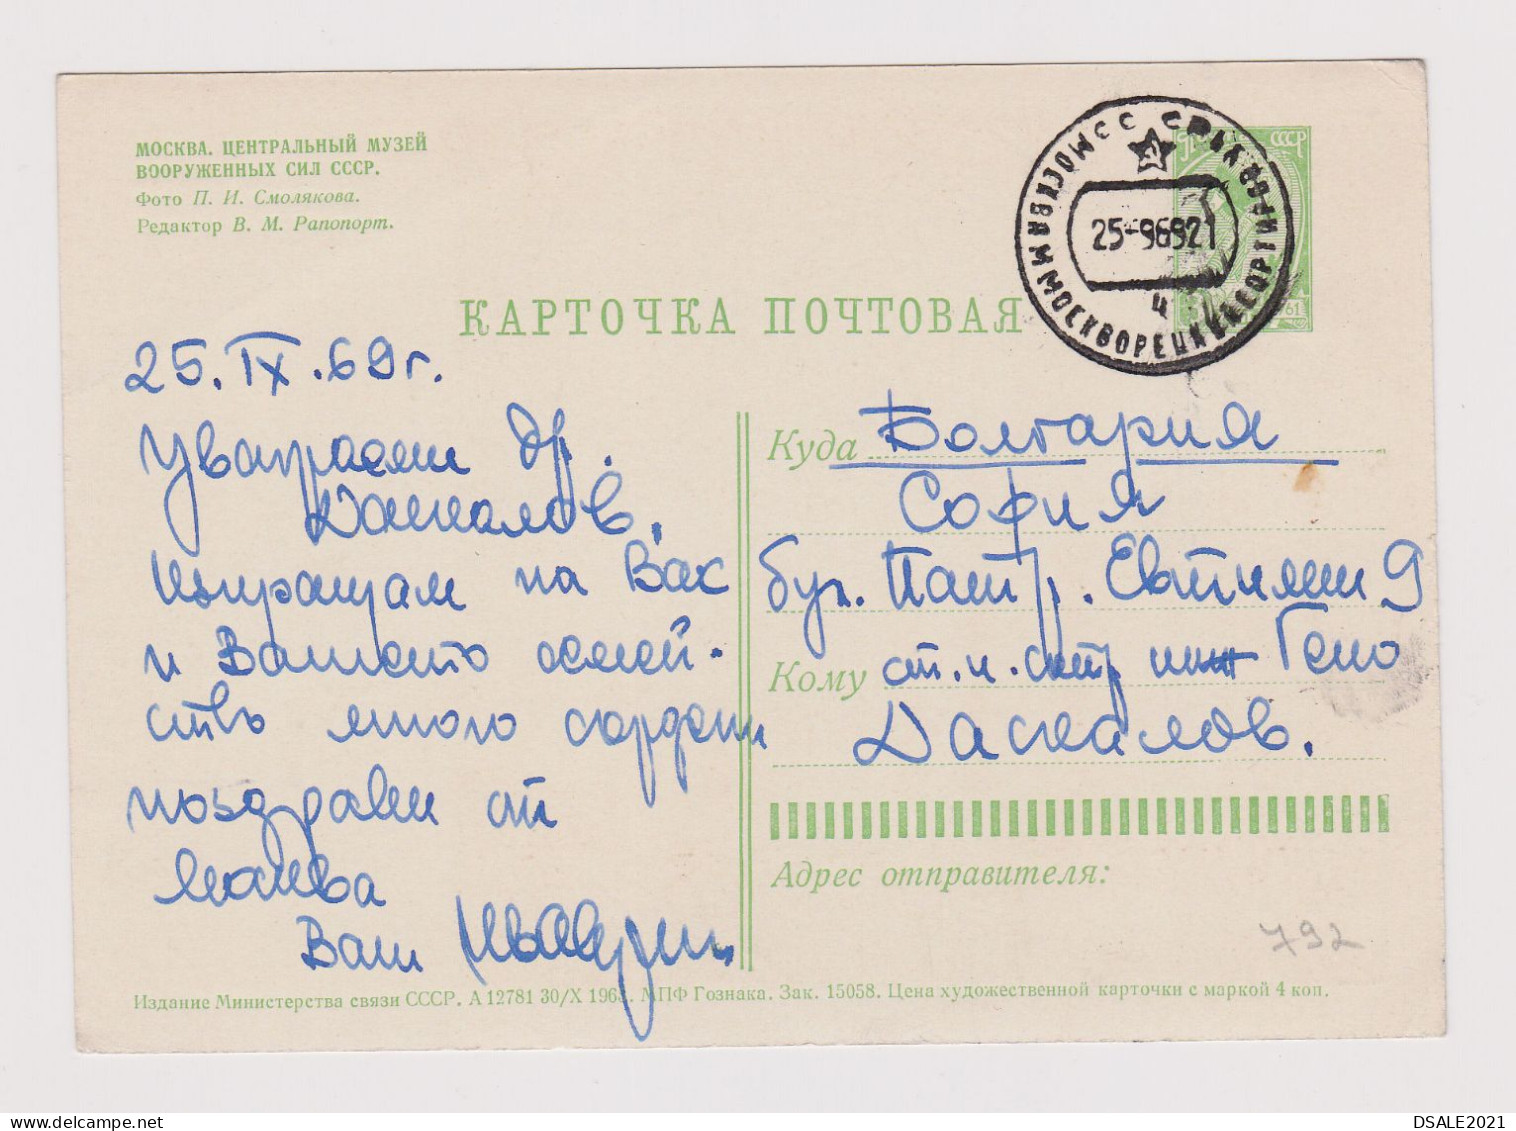 МОСКВА. ЦЕНТРАЛЬНЫЙ МУЗЕЙ
ВООРУЖЕННЫХ СИЛ СССР.
Фото П. И. Смолякова.
Редактор В. М. Рапопорт.
25-96921
КАРТОЧКА ПОЧТОВАЯ
25.IX.69г.
Уважаеми др.
Даскалов,
Изпращам на Вас
и Вашето семей-
ство много сърдечни
поздрави от
Москва
Ваш
Куда Болгария
София
бул. Патр. Евтимий 9
Кому ст.н.сътр инж Гено
Даскалов.
Адрес отправителя:
792
Издание Министерства связи СССР. А 12781 30/X 196 МПФ Гознака. Зак. 15058. Цена художественной карточки с маркой 4 коп.
DSALE2021